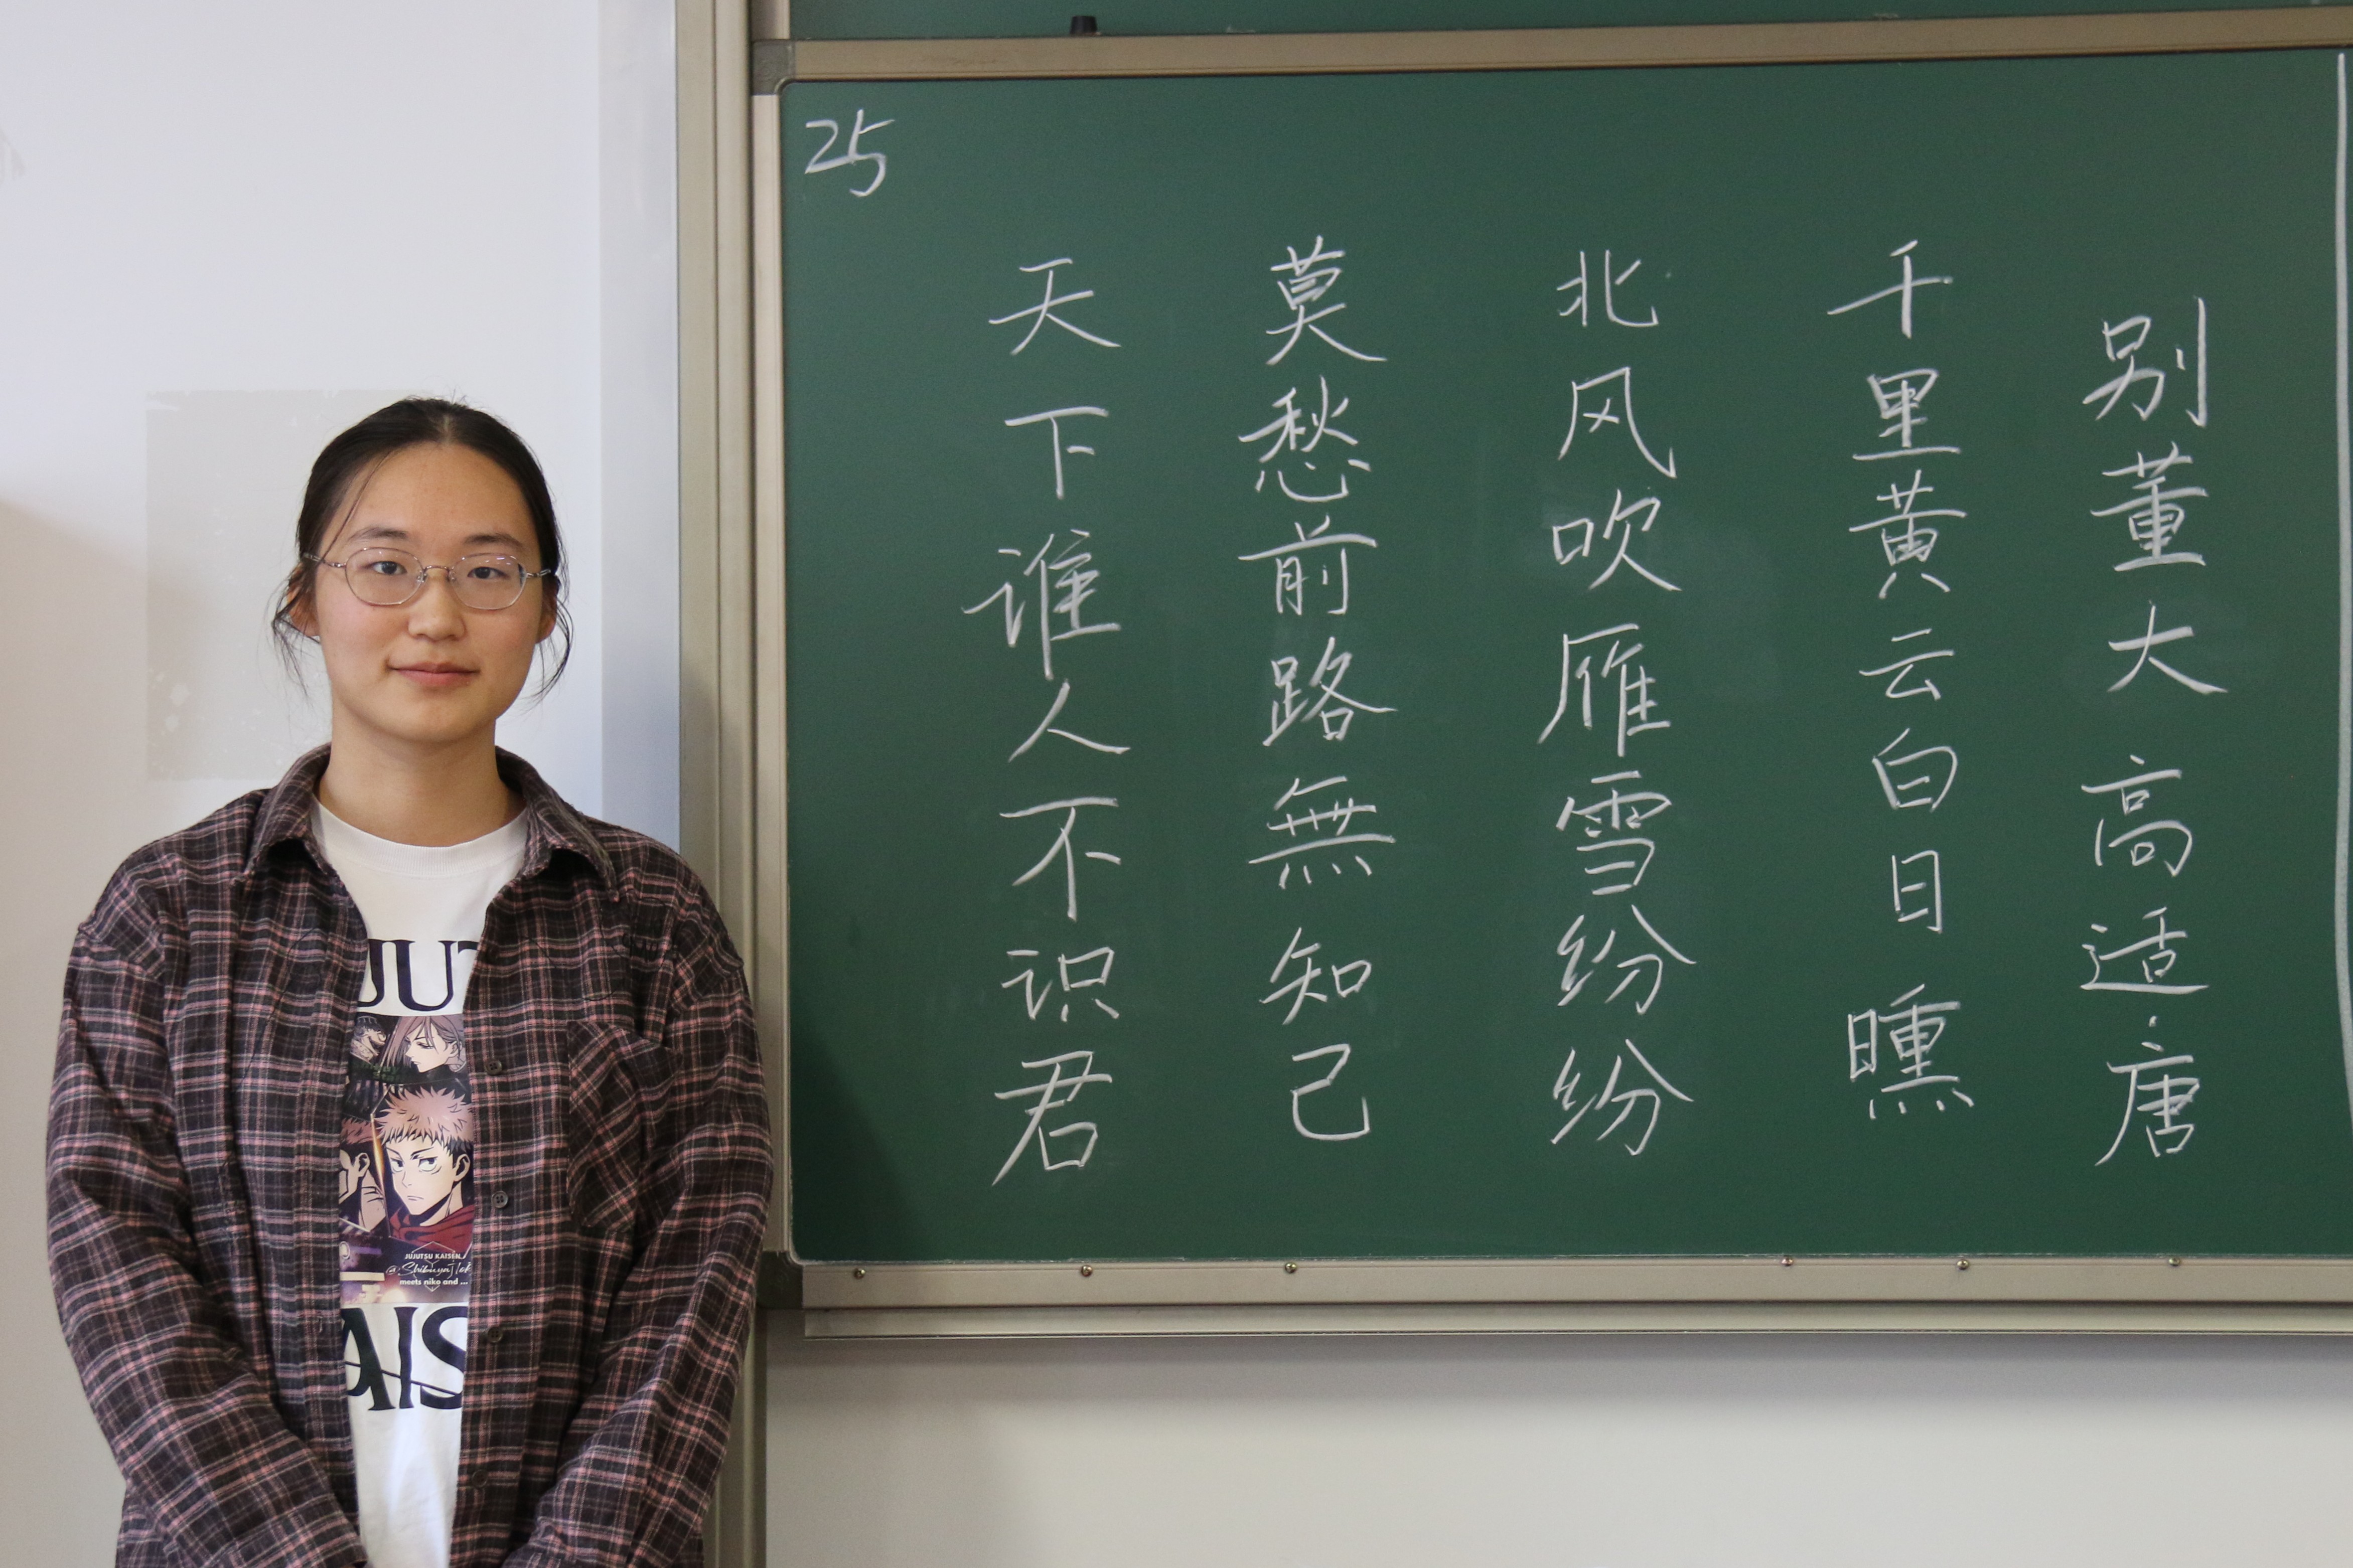 25
别董大 高适·唐
千里黄云白日曛
北风吹雁雪纷纷
莫愁前路無知己
天下谁人不识君
JUT
JUJUTSU KAISEN
meets niko and ...
AIS